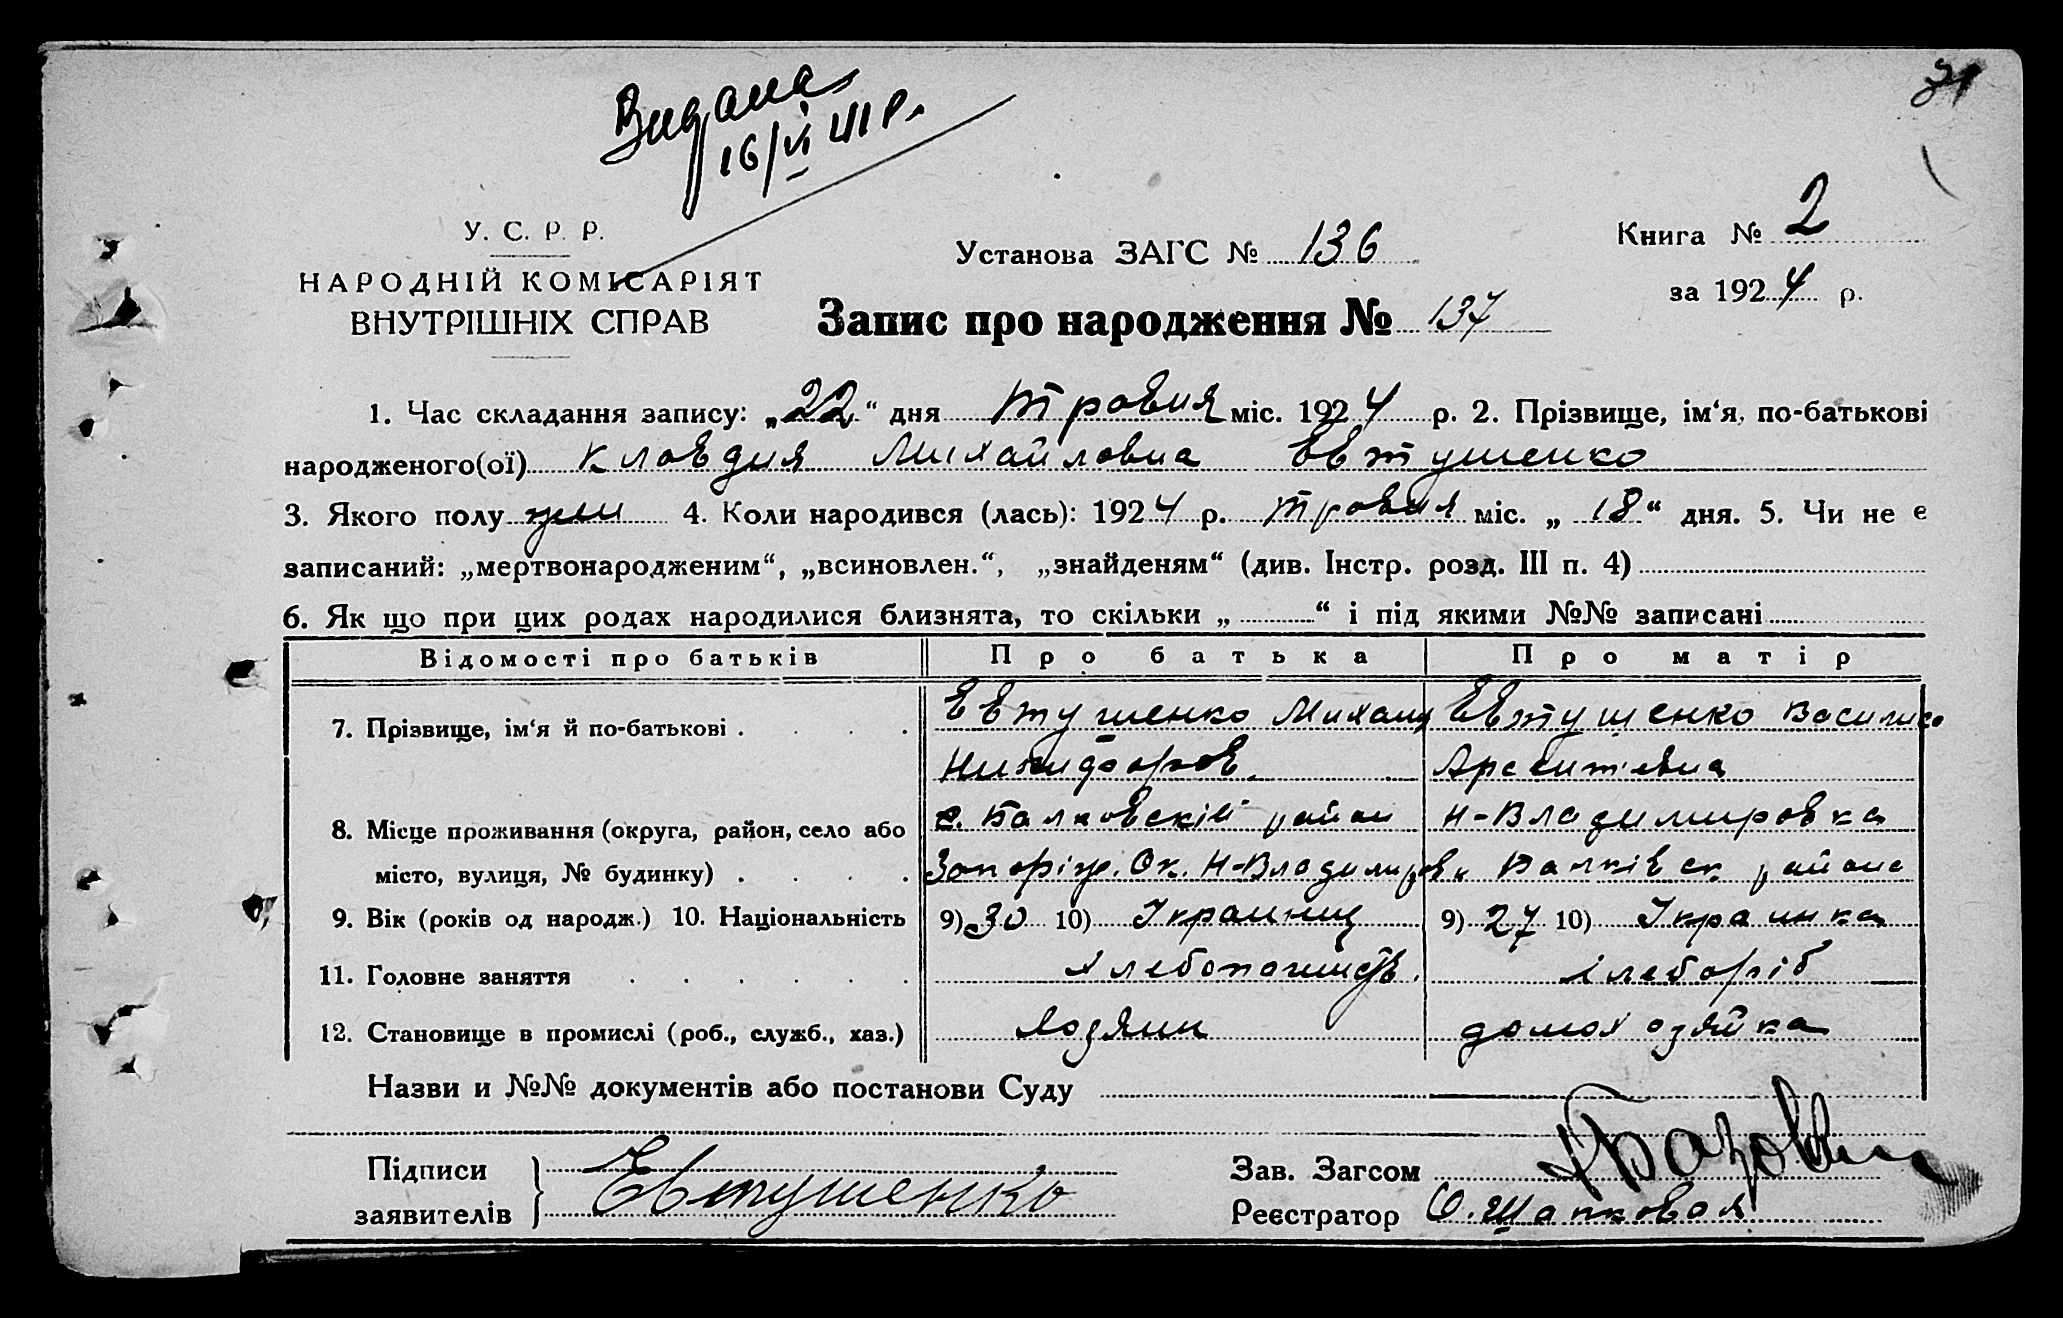 Видана
16/VI 41 р.
31
У. С. Р. Р.
НАРОДНІЙ КОМІСАРІЯТ
ВНУТРІШНІХ СПРАВ
Установа ЗАГС № 136
Книга № 2
за 1924 р.
Запис про народження № 137
1. Час складання запису: „22“ дня травня міс. 1924 р. 2. Прізвище, ім‘я, по-батькові
народженого(ої) Клавдия Михайловна Евтушенко
3. Якого полу жен 4. Коли народився (лась): 1924 р. травня міс. „18“ дня. 5. Чи не є
записаний: „мертвонародженим“, „всиновлен.“, „знайденям“ (див. Інстр. розд. III п. 4)
6. Як що при цих родах народилися близнята, то скільки „ “ і під якими №№ записані
Відомості про батьків Про батька Про матір
7. Прізвище, ім‘я й по-батькові Евтушенко Михаил Евтушенко Василиса
Никифоров Арсентьевна
8. Місце проживання (округа, район, село або с. Балковскій район Н-Владимировка
місто, вулиця, № будинку) Запоріж. Ок. Н-Владимировк Балківск района
9. Вік (років од народж.) 10. Національність 9) 30 10) Українец 9) 27 10) Українка
11. Головне заняття хлебопашество хлебороб
12. Становище в промислі (роб., служб., хаз.) хозяин домохозяйка
Назви и №№ документів або постанови Суду
Підписи
заявителів } Евтушенко
Зав. Загсом
Реєстратор О. Шапковая